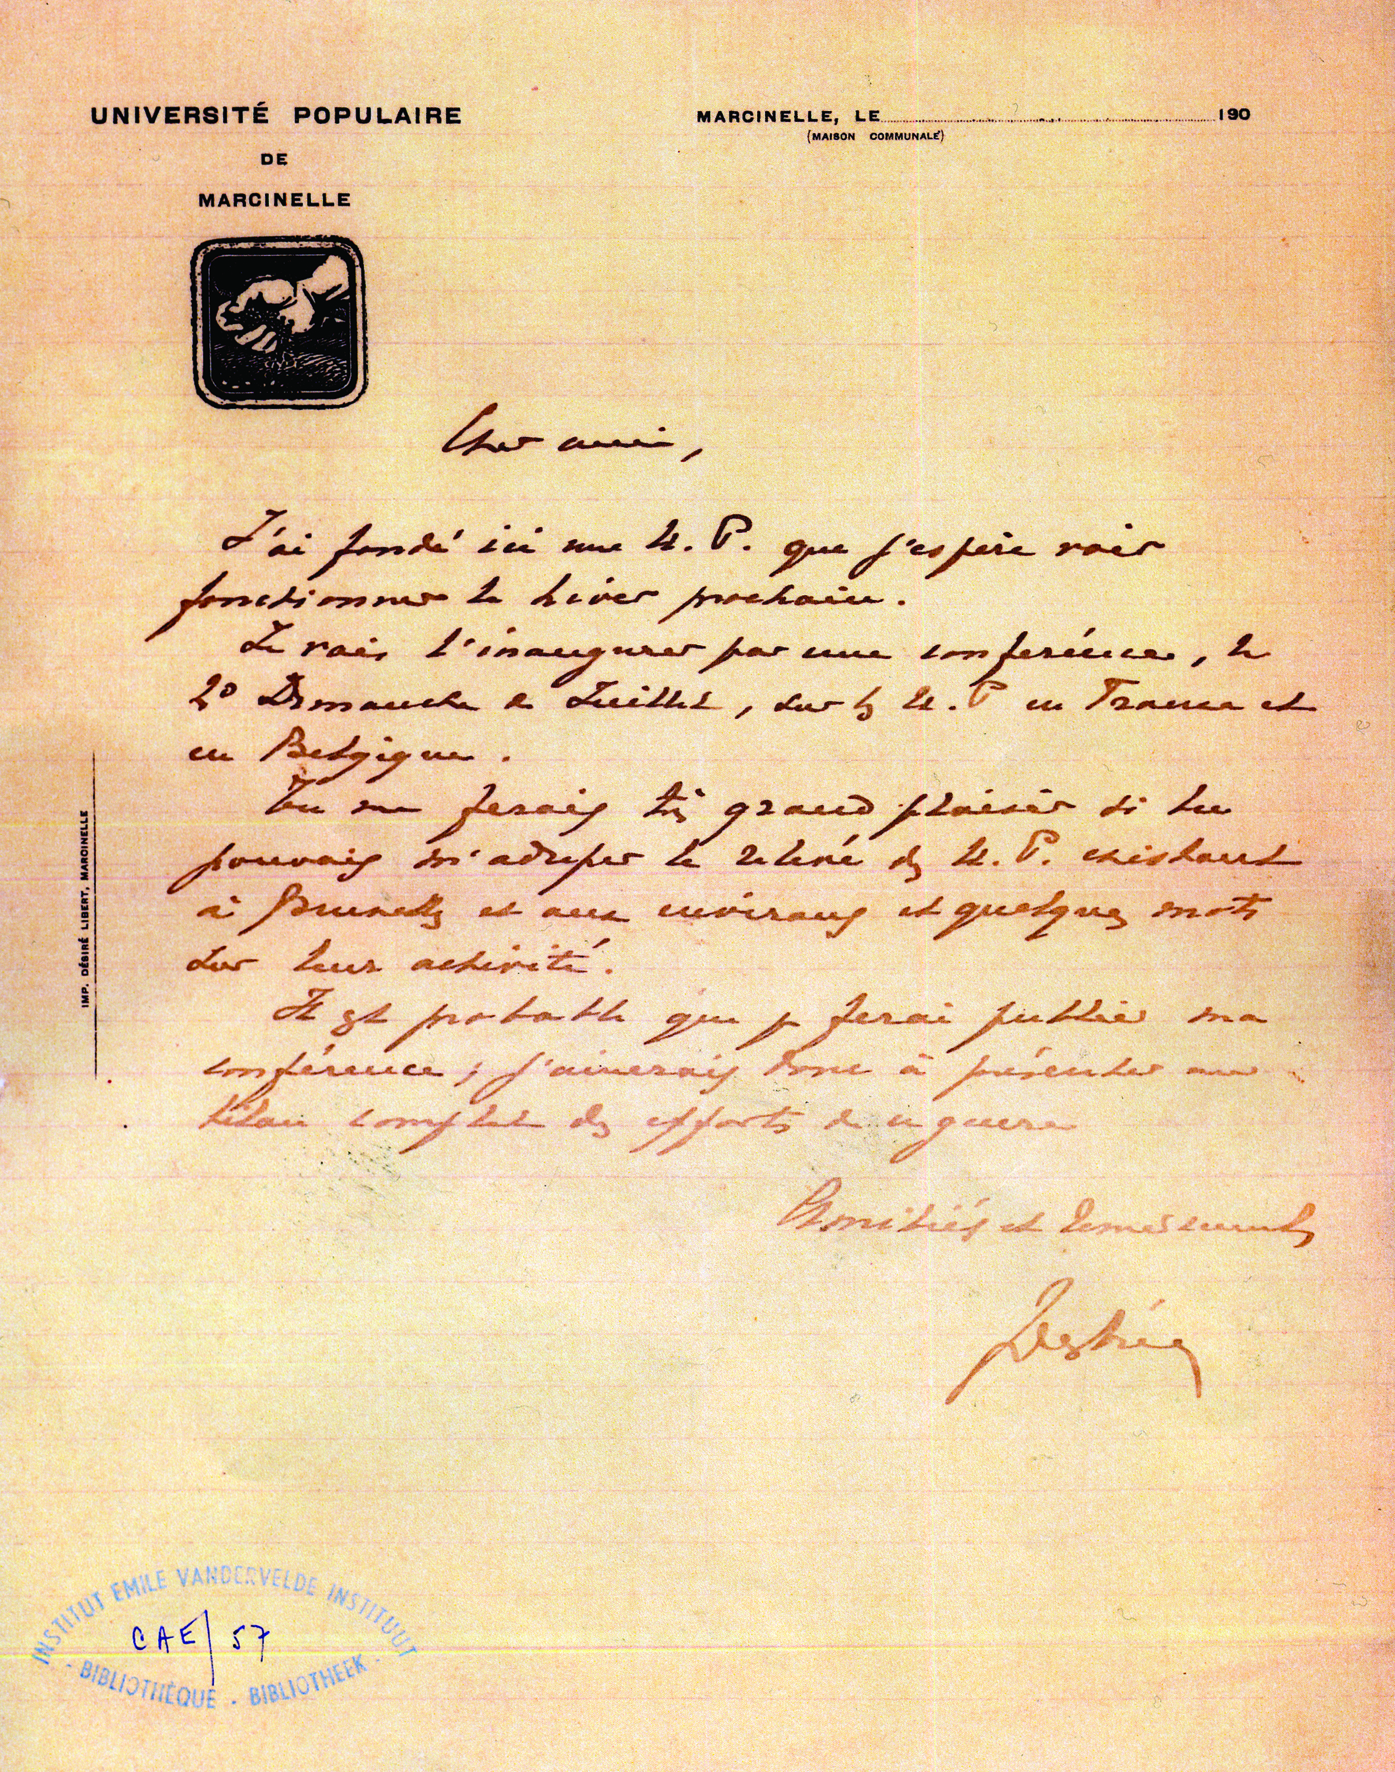 UNIVERSITÉ POPULAIRE
DE
MARCINELLE
MARCINELLE, LE 190
(MAISON COMMUNALE)
Cher ami,
J'ai fondé ici une U. P. que j'espère voir
fonctionner le hiver prochain.
Je vais l'inaugurer par une conférence, le
2º Dimanche de Juillet, sur les U. P en France et
en Belgique.
Tu me ferais très grand plaisir si tu
pouvais m'adresser le relevé des U. P. existant
à Bruxelles et aux environs et quelques mots
sur leur activité.
Il est probable que je ferai publier ma
conférence ; j'aimerais donc à présenter un
bilan complet des efforts de ce genre
Amitiés et remerciements
JDestrée
IMP. DÉSIRÉ LIBERT, MARCINELLE
INSTITUT EMILE VANDERVELDE INSTITUUT
CAE/57
- BIBLIOTHÈQUE - BIBLIOTHEEK -